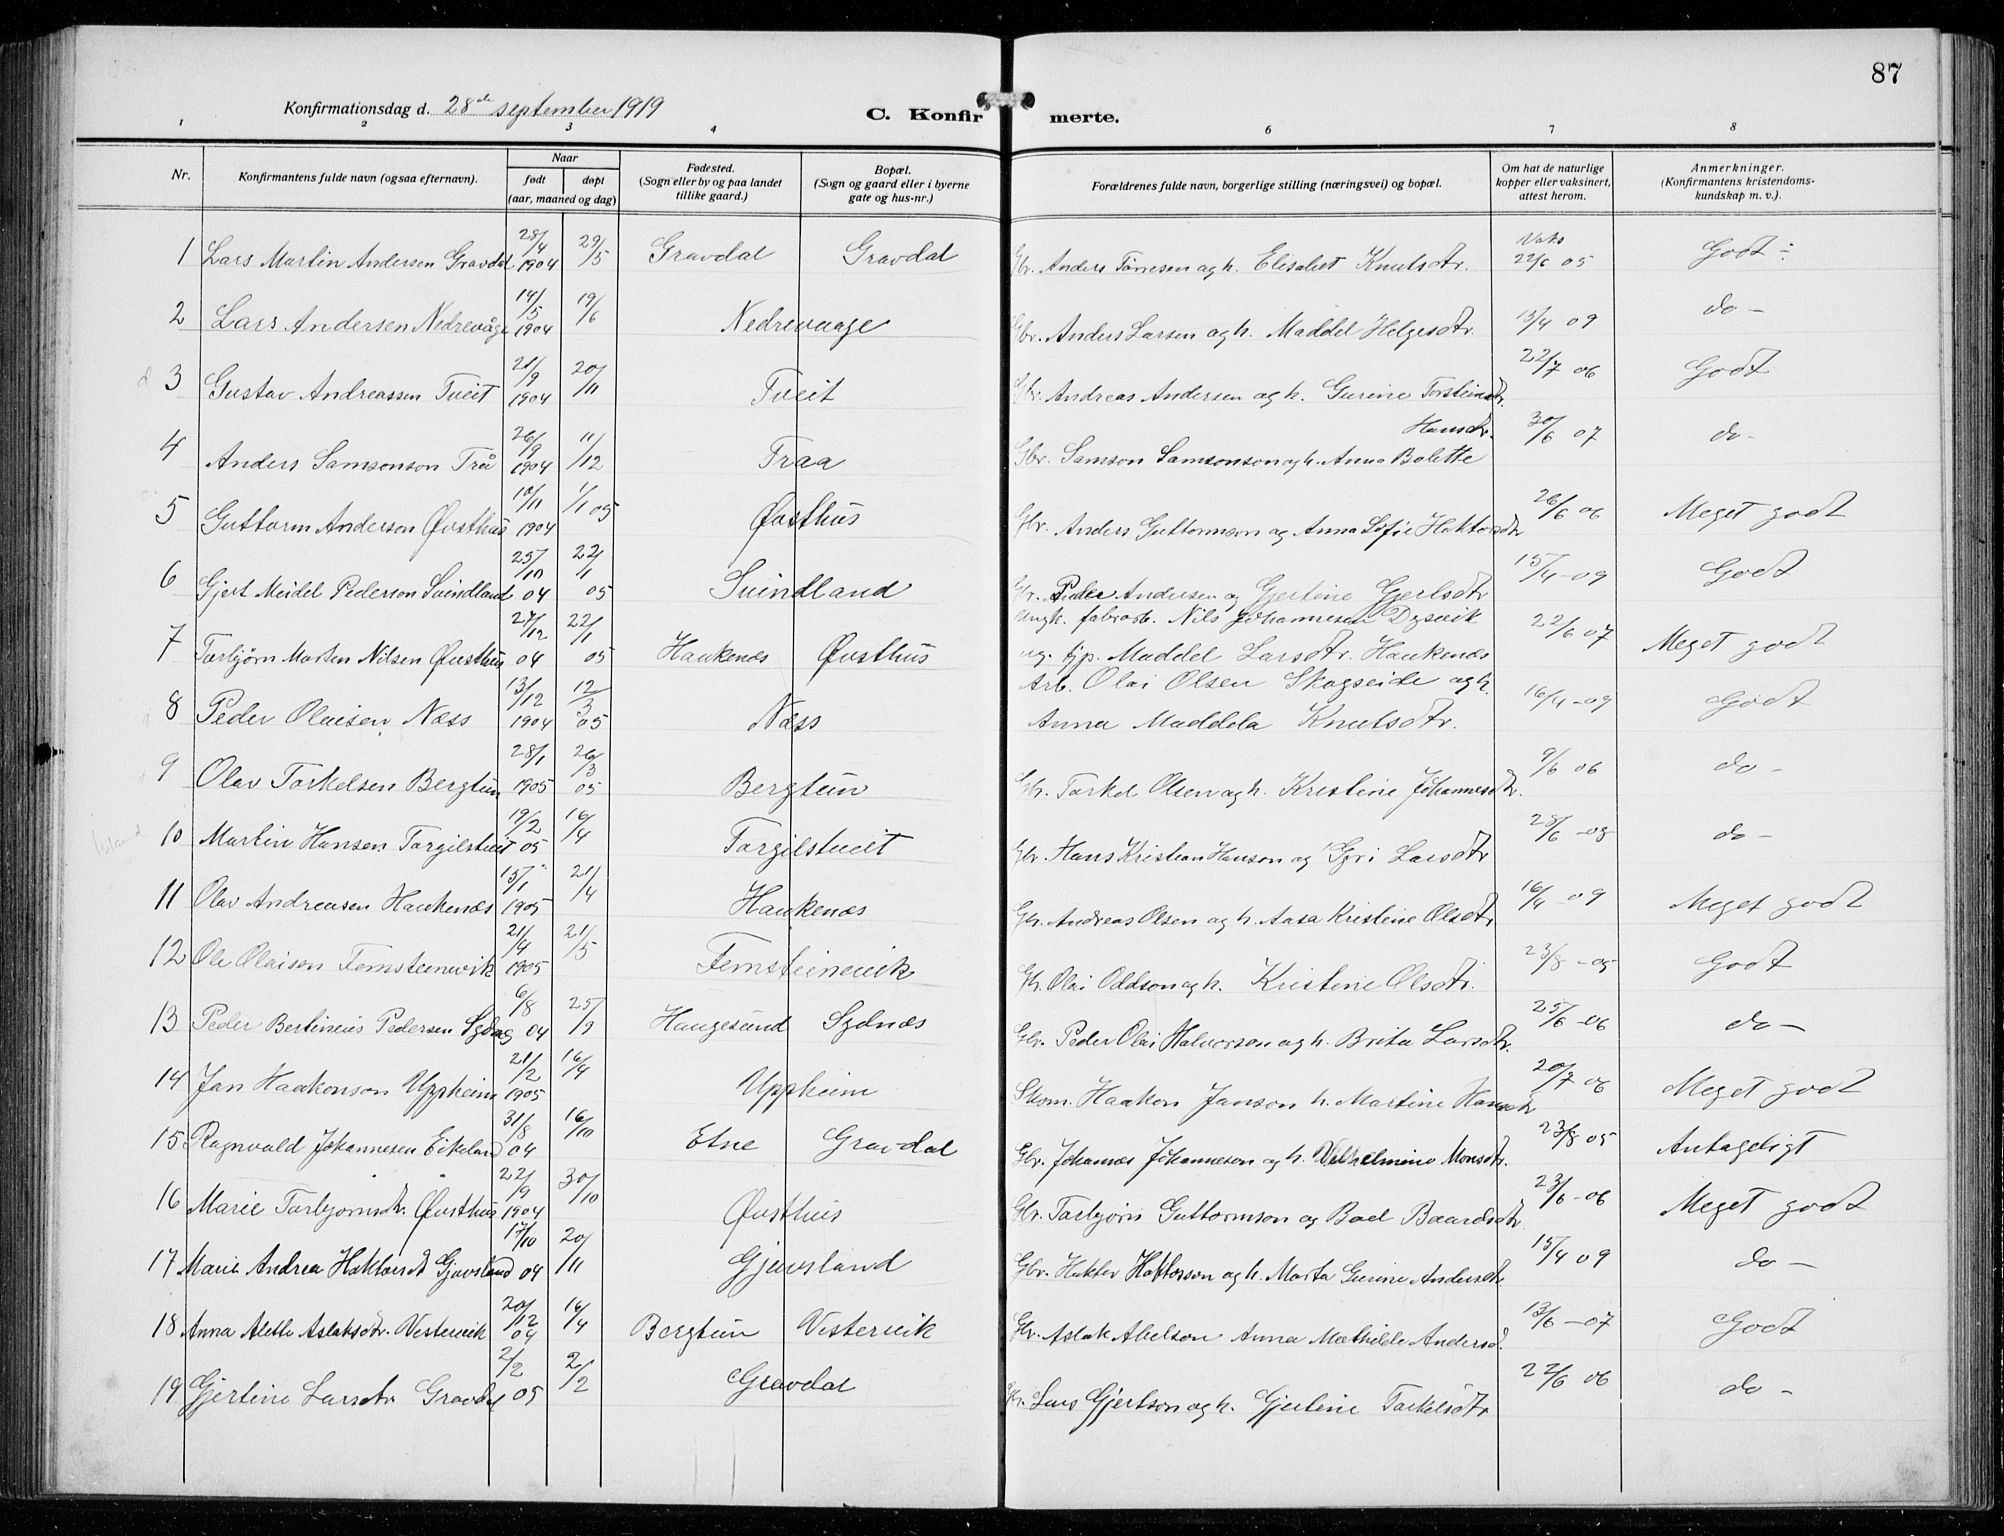 87
Konfirmationsdag d. 28de september 1919
C. Konfirmerte.
1 2 3 4 6 7 8
Nr. Konfirmantens fulde navn (ogsaa efternavn). Naar født døpt (aar, maaned og dag) Fødested. (Sogn eller by og paa landet tillike gaard.) Bopæl. (Sogn og gaard eller i byerne gate og hus-nr.) Forældrenes fulde navn, borgerlige stilling (næringsvei) og bopæl. Om hat de naturlige kopper eller vaksinert, attest herom. Anmerkninger. (Konfirmantens kristendoms- kundskap m. v.).
1 Lars Martin Andersen Gravdal 28/4 1904 29/5 Gravdal Gravdal Gbr. Anders Tørresen og h. Elisabet Knutsdtr. Vaks 22/6 05 Godt ÷
2 Lars Andersen Nedrevåge 14/5 1904 19/6 Nedrevaage Gbr. Anders Larsen og h. Maddel Helgesdtr. 13/4 09 do -
3 Gustav Andreassen Tveit 21/9 1904 20/11 Tveit Gbr. Andreas Andersen og h. Gurine Torsteinsdtr. 22/7 06 Godt
4 Anders Samsonson Trå 26/9 1904 11/12 Traa Gbr. Samson Samsonson og h. Anna Bolette Hansdtr. 30/6 07 do-
5 Guttorm Anderson Øvsthus 10/11 1904 1/1 05 Øvsthus Gbr. Anders Guttormson og Anna Sofie Haktorsdtr 26/6 06 Meget godt
6 Gjert Meidel Pederson Svindland 25/10 04 22/1 05 Svindland Gbr. Peder Andersen og Gjertine Gjertsdtr 15/4 -09 Godt
7 Torbjørn Morten Nilsen Øvsthus 27/12 04 22/1 05 Haukenæs Øvsthus ungk. fabrarb. Nils Johannesen Dysvik og. tjp. Maddel Larsdtr. Haukenæs 22/6 07 Meget godt
8 Peder Olaisen Næss 13/12 1904 12/3 05 Næss Arb. Olai Olsen Skogseide og h. Anna Maddela Knutsdtr. 16/4 -09 Godt
9 Olav Torkelsen Bergtun 28/1 1905 26/3 05 Bergtun Gbr. Torkel Olsen og h. Kristine Johannesdtr. 9/6 06 do -
10 Martin Hansen Torgilstveit 19/2 05 16/4 Torgilstveit Gbr. Hans Kristian Hanson og Gyri Larsdtr 28/6 -08 do -
11 Olav Andreasen Haukenæs 15/1 1905 21/4 Haukenæs Gbr. Andreas Olsen og h. Aasa Kristine Olsdtr 16/4 -09 Meget godt
12 Ole Olaison Femsteinevik 21/4 1905 21/5 Femsteinevik Gbr. Olai Oddson og h. Kristine Olsdtr. 23/8 -05 Godt
13 Peder Bertineus Pedersen Sydnæs 6/8 04 25/9 Haugesund Sydnæs Gbr. Peder Olai Halvorson og h. Brita Larsdtr. 25/6 -06 do -
14 Jan Haakonson Uppheim 21/2 1905 16/4 Uppheim Skom. Haakon Janson h. Martine Hansdtr 20/7 06 Meget godt
15 Ragnvald Johannesen Eikeland 31/8 04 16/10 Etne Gravdal Gbr. Johannes Johanneson og h. Vilhelmine Monsdtr. 23/8 05 Antageligt
16 Marie Torbjørnsdtr. Øvsthus 22/9 1904 30/10 Øvsthus Gbr. Torbjørn Guttormson og Boel Baardsdtr 23/6 -06 Meget godt
17 Marie Andrea Haktorsdt Gjøvsland 17/10 04 20/11 Gjøvsland Gbr. Haktor Haktorson og h. Marta Gurine Andersdtr. 15/4 09 do -
18 Anna Alette Aslaksdtr. Vestervik 20/12 04 16/4 Bergtun Vestervik Gbr. Aslak Abelson Anna Mathilde Andersd. 13/6 -07 Godt
19 Gjertine Larsdtr Gravdal 2/2 05 2/2 Gravdal Gbr. Lars Gjertson og h. Gjertine Torkelsdtr 22/6 06 do -